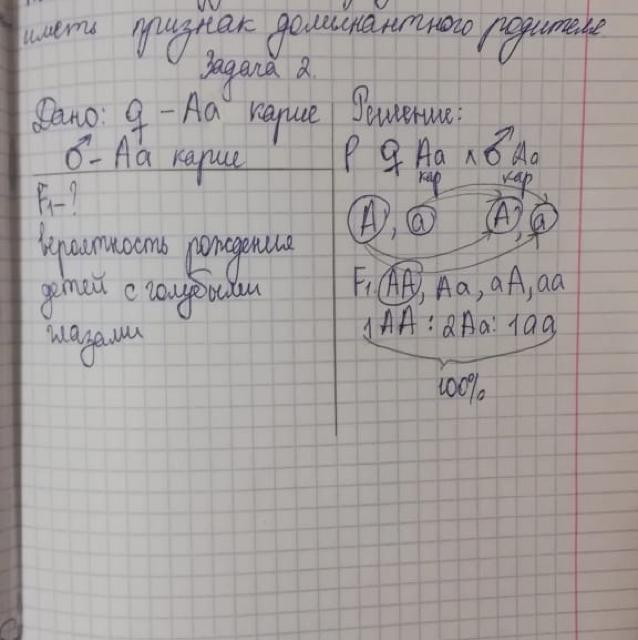 иметь признак доминантного родителя
Задача 2.
Дано: ♀ - Aa карие
♂ - Aa карие
F₁-?
вероятность рождения
детей с голубыми
глазами
Решение:
P ♀ Aa x ♂ Aa
кар кар
A, a A, a
F₁ AA, Aa, aA, aa
1AA : 2Aa : 1aa
100%